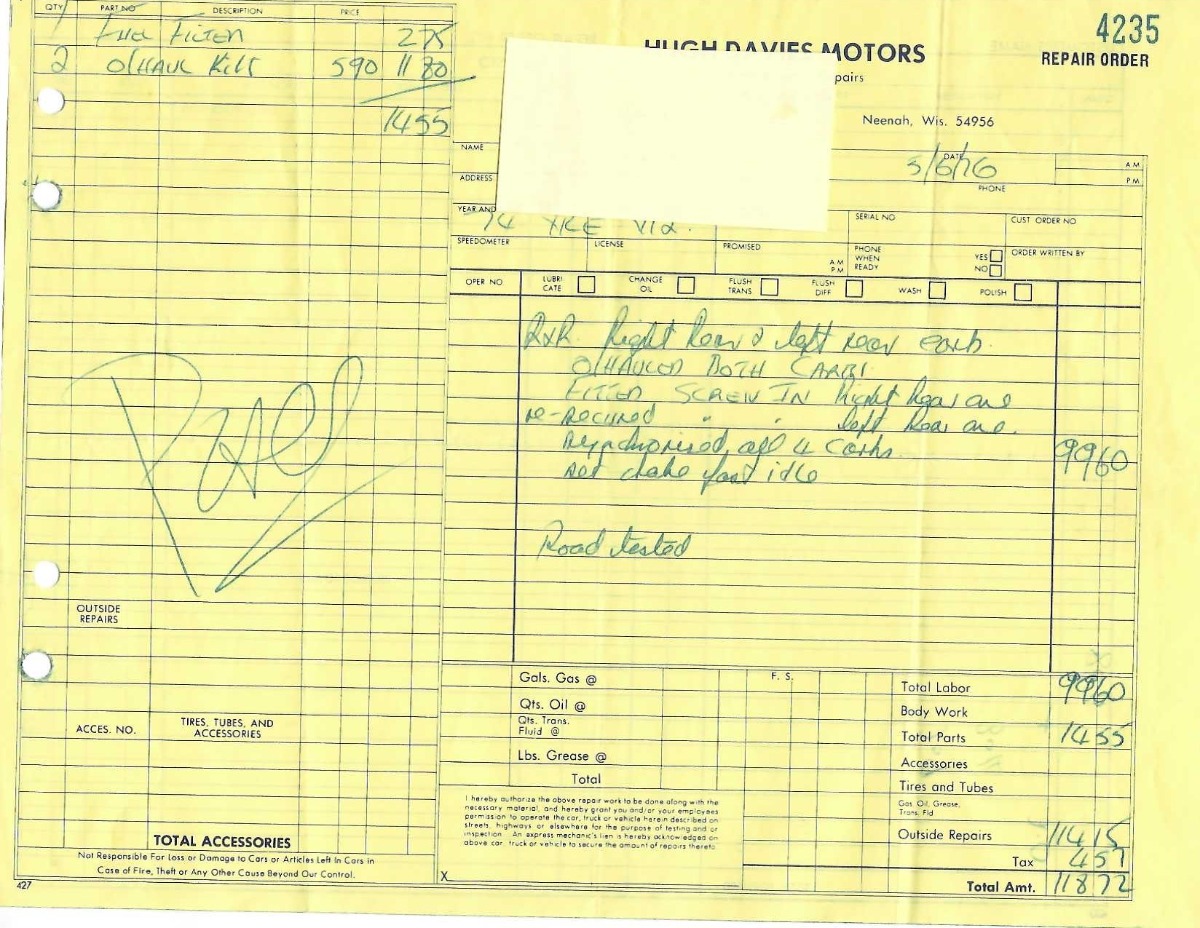 QTY PART NO DESCRIPTION PRICE
1 Fuel Filter 2 75
2 O/HAUL Kits 590 11 80
14 55
HUGH DAVIES MOTORS
pairs
Neenah, Wis. 54956
4235
REPAIR ORDER
NAME
DATE 3/6/76 A M
P M
ADDRESS PHONE
YEAR AND 74 XKE V12. SERIAL NO CUST ORDER NO
SPEEDOMETER LICENSE PROMISED A M P M PHONE WHEN READY YES NO ORDER WRITTEN BY
OPER NO LUBRI CATE CHANGE OIL FLUSH TRANS FLUSH DIFF WASH POLISH
R&R. Right Rear & left rear carb.
O/HAULED BOTH CARBS.
FITTED SCREW IN Right Rear one
re-secured " " left Rear one.
all 4 Carbs. 99 60
set choke fast idle
Road tested
Paid
OUTSIDE REPAIRS
ACCES. NO. TIRES, TUBES, AND ACCESSORIES
TOTAL ACCESSORIES
Not Responsible For Loss or Damage to Cars or Articles Left In Cars in
Case of Fire, Theft or Any Other Cause Beyond Our Control.
427
Gals. Gas @
Qts. Oil @
Qts. Trans. Fluid @
Lbs. Grease @
Total
F. S.
I hereby authorize the above repair work to be done along with the
necessary material, and hereby grant you and/or your employees
permission to operate the car, truck or vehicle herein described on
streets, highways or elsewhere for the purpose of testing and or
inspection. An express mechanic's lien is hereby acknowledged on
above car, truck or vehicle to secure the amount of repairs thereto.
X
Total Labor 99 60
Body Work
Total Parts 14 55
Accessories
Tires and Tubes
Gas, Oil, Grease, Trans. Fld
Outside Repairs 114 15
Tax 4 57
Total Amt. 118 72